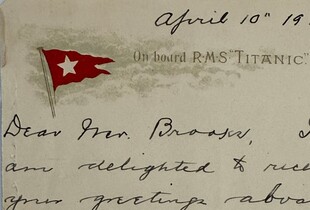 April 10th 19
On board R.M.S "TITANIC".
Dear Mr. Brooks, I
am delighted to rece
your greetings aboa